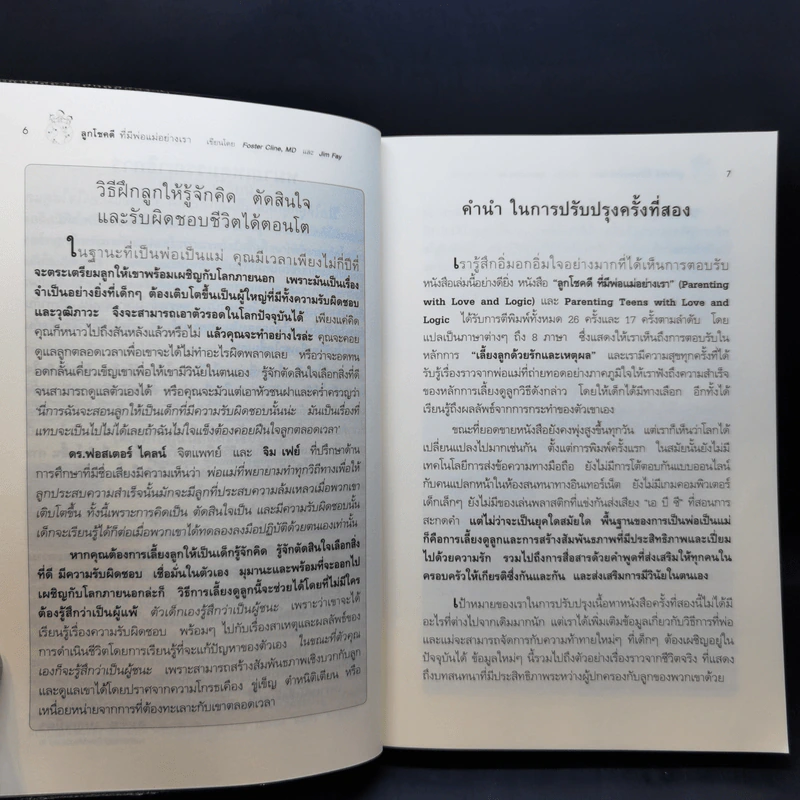 6
ลูกโชคดี ที่มีพ่อแม่อย่างเรา เขียนโดย Foster Cline, MD และ Jim Fay
วิธีฝึกลูกให้รู้จักคิด ตัดสินใจ
และรับผิดชอบชีวิตได้ตอนโต
ในฐานะที่เป็นพ่อเป็นแม่ คุณมีเวลาเพียงไม่กี่ปีที่
จะตระเตรียมลูกให้เขาพร้อมเผชิญกับโลกภายนอก เพราะมันเป็นเรื่อง
จำเป็นอย่างยิ่งที่เด็กๆ ต้องเติบโตขึ้นเป็นผู้ใหญ่ที่มีทั้งความรับผิดชอบ
และวุฒิภาวะ จึงจะสามารถเอาตัวรอดในโลกปัจจุบันได้ เพียงแค่คิด
คุณก็หนาวไปถึงสันหลังแล้วหรือไม่ แล้วคุณจะทำอย่างไรล่ะ คุณจะคอย
ดูแลลูกตลอดเวลาเพื่อเขาจะได้ไม่ทำอะไรผิดพลาดเลย หรือว่าจะอดทน
อดกลั้นเคี่ยวเข็ญเขาเพื่อให้เขามีวินัยในตนเอง รู้จักตัดสินใจเลือกสิ่งที่ดี
จนสามารถดูแลตัวเองได้ หรือคุณจะมัวแต่เอาหัวชนฝาและคร่ำครวญว่า
‘นี่การฉันจะสอนลูกให้เป็นเด็กที่มีความรับผิดชอบนั้นน่ะ มันเป็นเรื่องที่
แทบจะเป็นไปไม่ได้เลยถ้าฉันไม่ใจแข็งต้องคอยฝืนใจลูกตลอดเวลา’
ดร.ฟอสเตอร์ ไคลน์ จิตแพทย์ และ จิม เฟย์ ที่ปรึกษาด้าน
การศึกษาที่มีชื่อเสียงมีความเห็นว่า พ่อแม่ที่พยายามทำทุกวิถีทางเพื่อให้
ลูกประสบความสำเร็จนั้นมักจะมีลูกที่ประสบความล้มเหลวเมื่อพวกเขา
เติบโตขึ้น ทั้งนี้เพราะการคิดเป็น ตัดสินใจเป็น และมีความรับผิดชอบนั้น
เด็กจะเรียนรู้ได้ก็ต่อเมื่อพวกเขาได้ทดลองลงมือปฏิบัติด้วยตนเองเท่านั้น
หากคุณต้องการเลี้ยงลูกให้เป็นเด็กรู้จักคิด รู้จักตัดสินใจเลือกสิ่ง
ที่ดี มีความรับผิดชอบ เชื่อมั่นในตัวเอง มุมานะและพร้อมที่จะออกไป
เผชิญกับโลกภายนอกล่ะก็ วิธีการเลี้ยงดูลูกนี้จะช่วยได้โดยที่ไม่มีใคร
ต้องรู้สึกว่าเป็นผู้แพ้ ตัวเด็กเองรู้สึกว่าเป็นผู้ชนะ เพราะว่าเขาจะได้
เรียนรู้เรื่องความรับผิดชอบ พร้อมๆ ไปกับเรื่องสาเหตุและผลลัพธ์ของ
การดำเนินชีวิตโดยการเรียนรู้ที่จะแก้ปัญหาของตัวเอง ในขณะที่ตัวคุณ
เองก็จะรู้สึกว่าเป็นผู้ชนะ เพราะสามารถสร้างสัมพันธภาพเชิงบวกกับลูก
และดูแลเขาได้โดยปราศจากความโกรธเคือง ขู่เข็ญ ตำหนิติเตียน หรือ
เหนื่อยหน่ายจากการที่ต้องทะเลาะกับเขาตลอดเวลา
7
คำนำ ในการปรับปรุงครั้งที่สอง
เรารู้สึกอิ่มอกอิ่มใจอย่างมากที่ได้เห็นการตอบรับ
หนังสือเล่มนี้อย่างดียิ่ง หนังสือ “ลูกโชคดี ที่มีพ่อแม่อย่างเรา” (Parenting
with Love and Logic) และ Parenting Teens with Love and
Logic ได้รับการตีพิมพ์ทั้งหมด 26 ครั้งและ 17 ครั้งตามลำดับ โดย
แปลเป็นภาษาต่างๆ ถึง 8 ภาษา ซึ่งแสดงให้เราเห็นถึงการตอบรับใน
หลักการ “เลี้ยงลูกด้วยรักและเหตุผล” และเรามีความสุขทุกครั้งที่ได้
รับรู้เรื่องราวจากพ่อแม่ที่ถ่ายทอดอย่างภาคภูมิใจให้เราฟังถึงความสำเร็จ
ของหลักการเลี้ยงดูลูกวิธีดังกล่าว โดยให้เด็กได้มีทางเลือก อีกทั้งได้
เรียนรู้ถึงผลลัพธ์จากการกระทำของตัวเขาเอง
ขณะที่ยอดขายหนังสือยังคงพุ่งสูงขึ้นทุกวัน แต่เราก็เห็นว่าโลกได้
เปลี่ยนแปลงไปมากเช่นกัน ตั้งแต่การพิมพ์ครั้งแรก ในสมัยนั้นยังไม่มี
เทคโนโลยีการส่งข้อความทางมือถือ ยังไม่มีการโต้ตอบกันแบบออนไลน์
กับคนแปลกหน้าในห้องสนทนาทางอินเทอร์เน็ต ยังไม่มีเกมคอมพิวเตอร์
เด็กเล็กๆ ยังไม่มีของเล่นพลาสติกที่แข่งกันส่งเสียง “เอ บี ซี” ที่สอนการ
สะกดคำ แต่ไม่ว่าจะเป็นยุคใดสมัยใด พื้นฐานของการเป็นพ่อเป็นแม่
ก็คือการเลี้ยงดูลูกและการสร้างสัมพันธภาพที่มีประสิทธิภาพและเปี่ยม
ไปด้วยความรัก รวมไปถึงการสื่อสารด้วยคำพูดที่ส่งเสริมให้ทุกคนใน
ครอบครัวให้เกียรติซึ่งกันและกัน และส่งเสริมการมีวินัยในตนเอง
เป้าหมายของเราในการปรับปรุงเนื้อหาหนังสือครั้งที่สองนี้ไม่ได้มี
อะไรที่ต่างไปจากเดิมมากนัก แต่เราได้เพิ่มเติมข้อมูลเกี่ยวกับวิธีการที่พ่อ
และแม่จะสามารถจัดการกับความท้าทายใหม่ๆ ที่เด็กๆ ต้องเผชิญอยู่ใน
ปัจจุบันได้ ข้อมูลใหม่ๆ นี้รวมไปถึงตัวอย่างเรื่องราวจากชีวิตจริง ที่แสดง
ถึงบทสนทนาที่มีประสิทธิภาพระหว่างผู้ปกครองกับลูกของพวกเขาด้วย